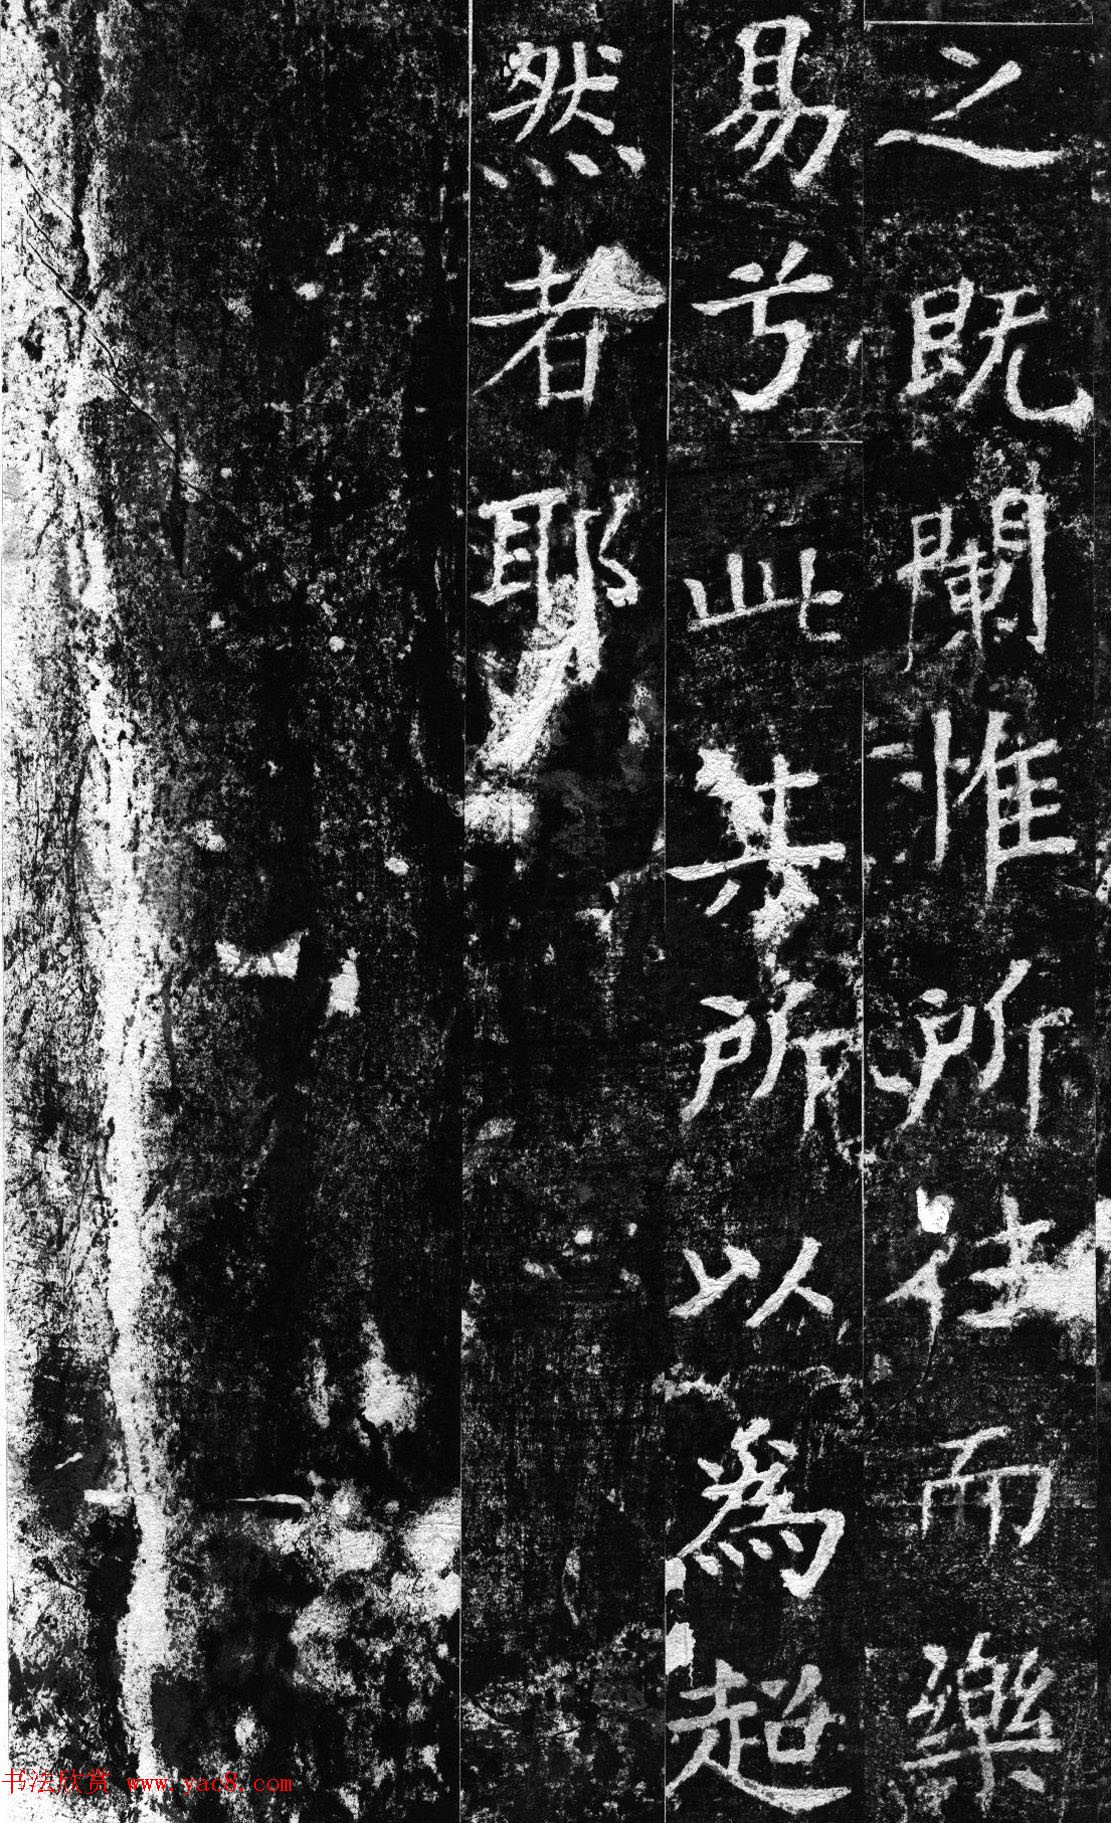 之既闌惟所往而樂
易兮此其所以為超
然者耶
书法欣赏 www.yac8.com